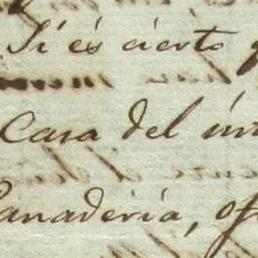 Si és cierto
Casa del
Panadería,